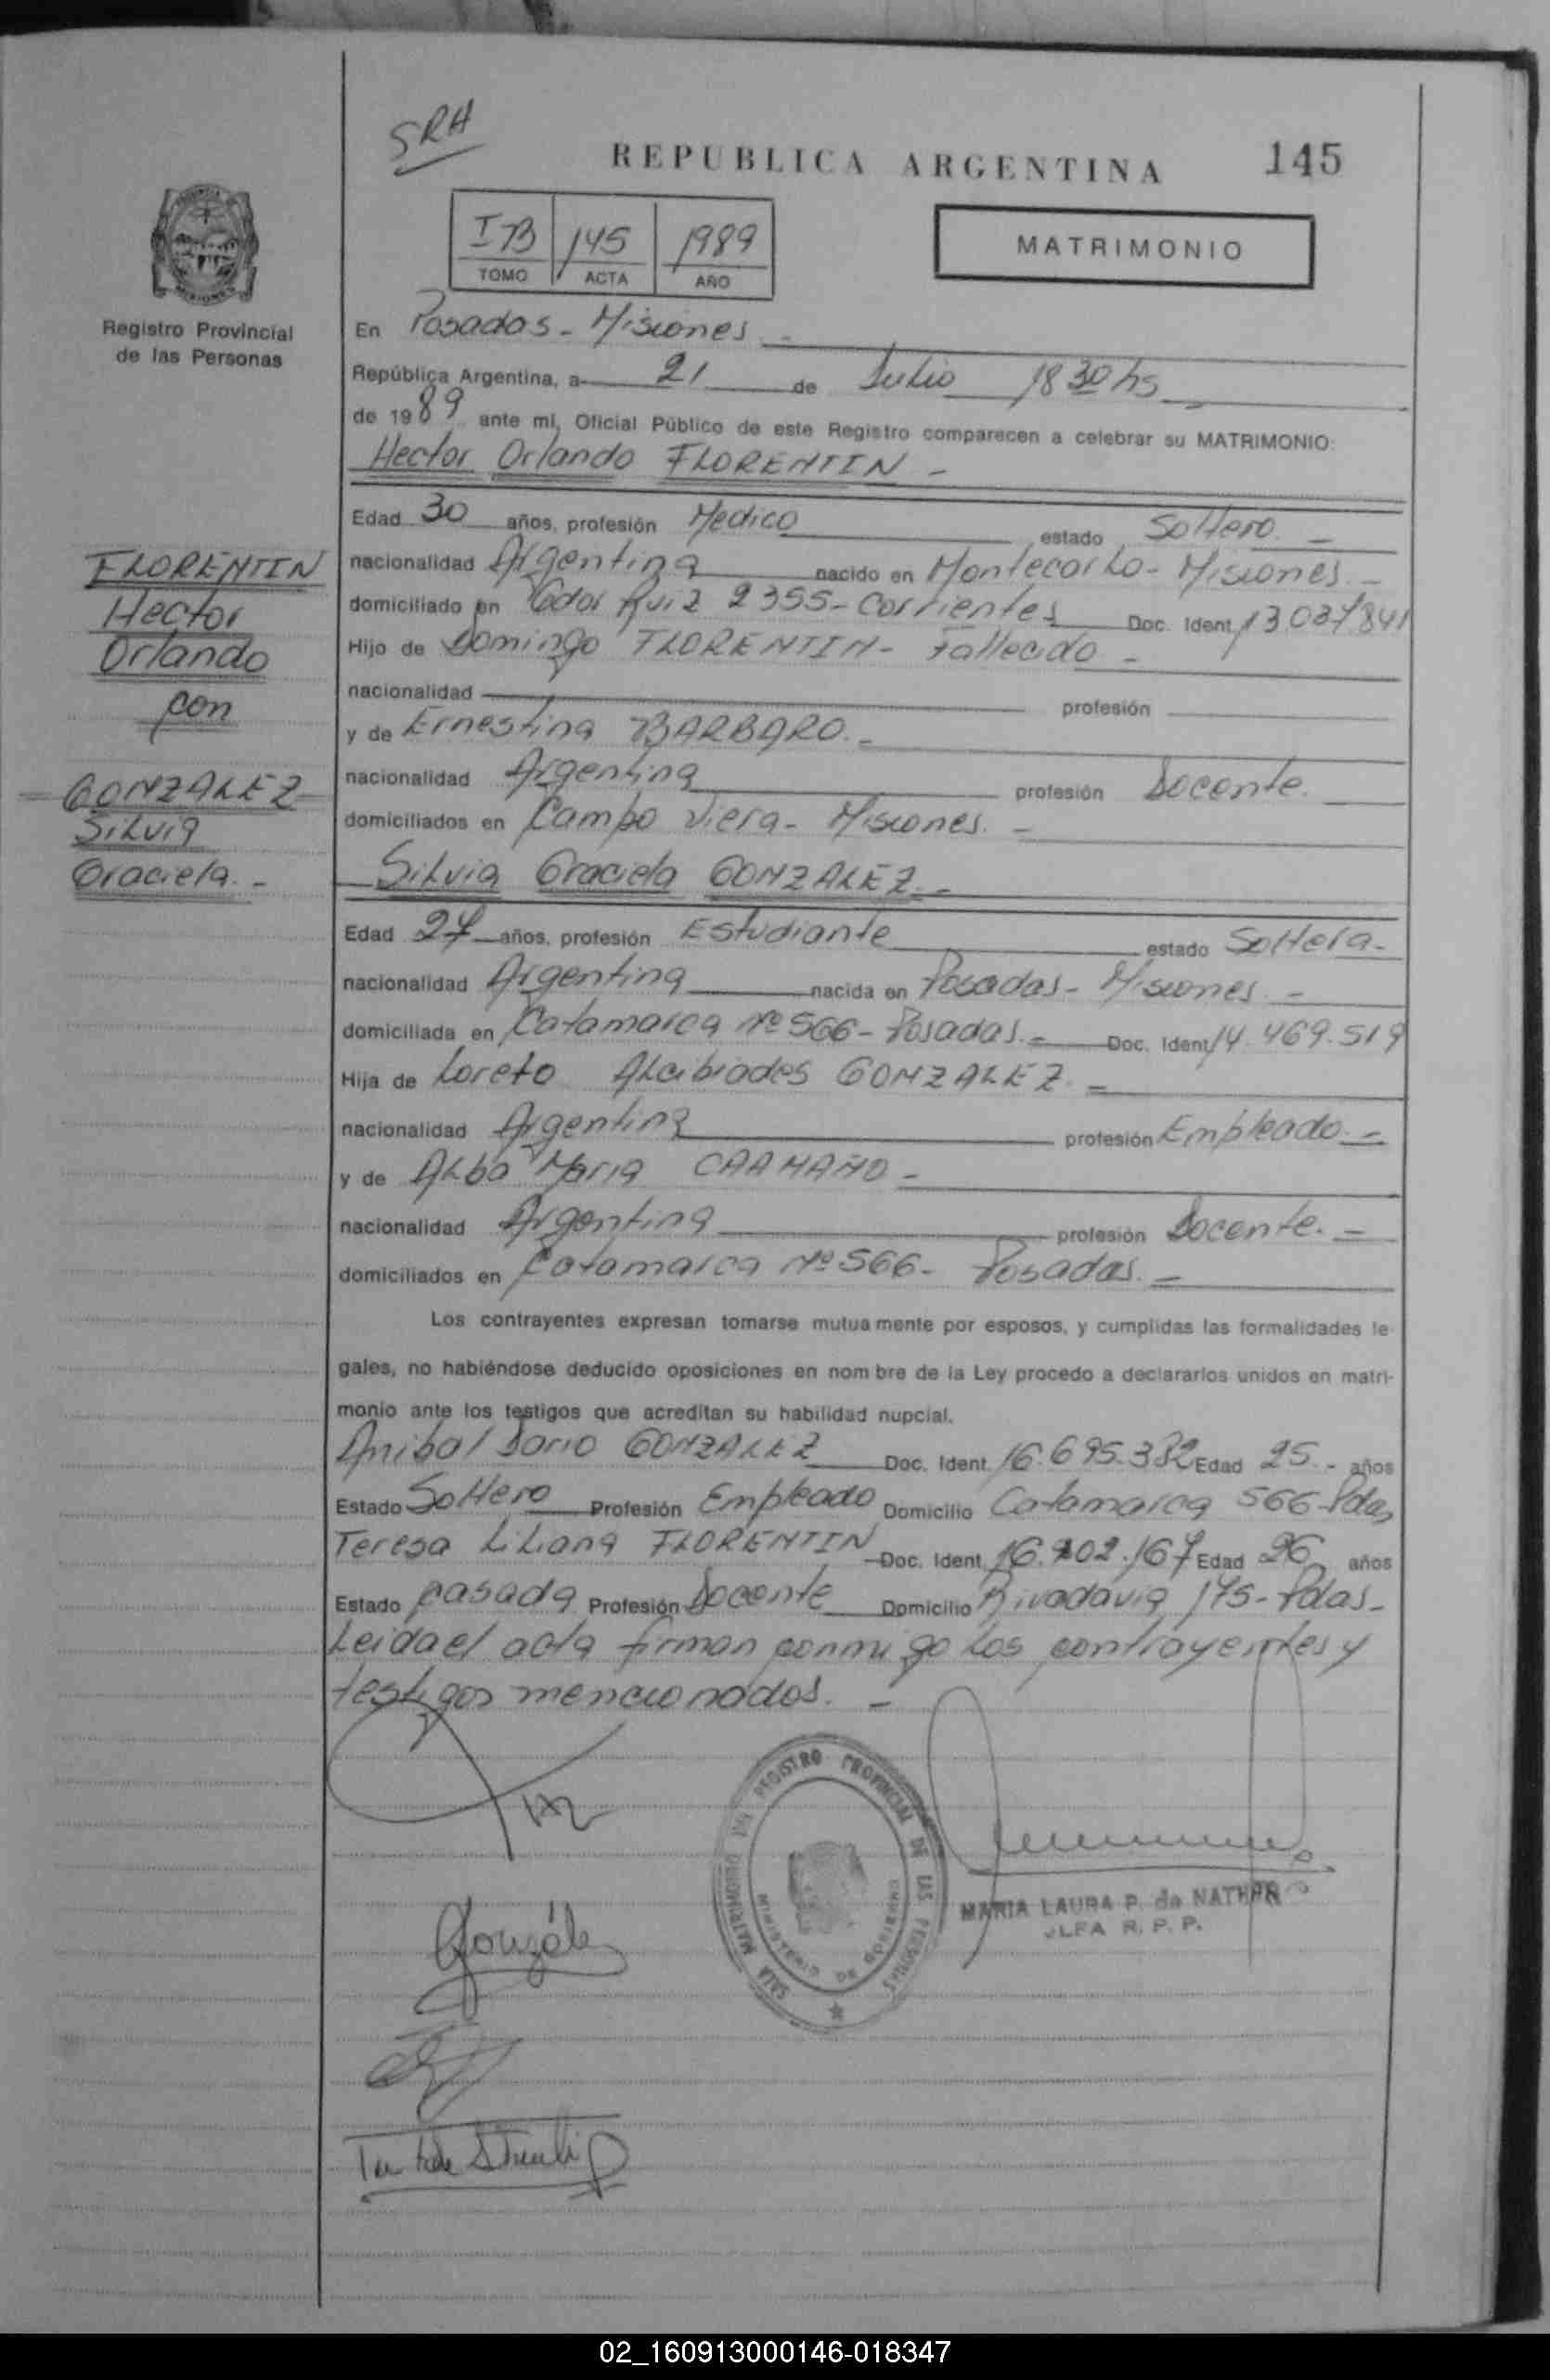 SRH
REPUBLICA ARGENTINA 145
I B 145 1989
TOMO ACTA AÑO
MATRIMONIO
Registro Provincial
de las Personas
FLORENTIN
Hector
Orlando
con
GONZALEZ
Silvia
Graciela.-
En Posadas - Misiones -
República Argentina, a 21 de Julio 18 30 hs
de 1989 ante mi, Oficial Público de este Registro comparecen a celebrar su MATRIMONIO:
Hector Orlando FLORENTIN -
Edad 30 años, profesión Medico estado Soltero. -
nacionalidad Argentina nacido en Montecarlo - Misiones. -
domiciliado en Ruiz 2355 - Corrientes Doc. Ident. 13.037841
Hijo de Domingo FLORENTIN - Fallecido -
nacionalidad profesión
y de Ernestina BARBARO. -
nacionalidad Argentina profesión Docente.
domiciliados en Campo Viera - Misiones. -
Silvia Graciela GONZALEZ. -
Edad 27 años, profesión Estudiante estado Soltera -
nacionalidad Argentina nacida en Posadas - Misiones. -
domiciliada en Catamarca Nº 566 - Posadas. - Doc. Ident. 14.469.519
Hija de Loreto Alcibiades GONZALEZ. -
nacionalidad Argentina profesión Empleado. -
y de Alba Maria CAAMAÑO -
nacionalidad Argentina profesión Docente. -
domiciliados en Catamarca Nº 566 - Posadas. -
Los contrayentes expresan tomarse mutua mente por esposos, y cumplidas las formalidades le-
gales, no habiéndose deducido oposiciones en nom bre de la Ley procedo a declararlos unidos en matri-
monio ante los testigos que acreditan su habilidad nupcial.
Anibal Dario GONZALEZ Doc. Ident. 16.695.332 Edad 25. - años
Estado Soltero Profesión Empleado Domicilio Catamarca 566 - Pdas
Teresa Liliana FLORENTIN Doc. Ident. 16.902.167 Edad 26 años
Estado casada Profesión Docente Domicilio Rivadavia 175 - Pdas -
Leida el acta firman conmigo los contrayentes y
testigos mencionados. -
SALA MATRIMONIO DEL REGISTRO PROVINCIAL DE LAS PERSONAS
MINISTERIO DE GOBIERNO
MARIA LAURA P. de
R. P. P.
González
02_160913000146-018347